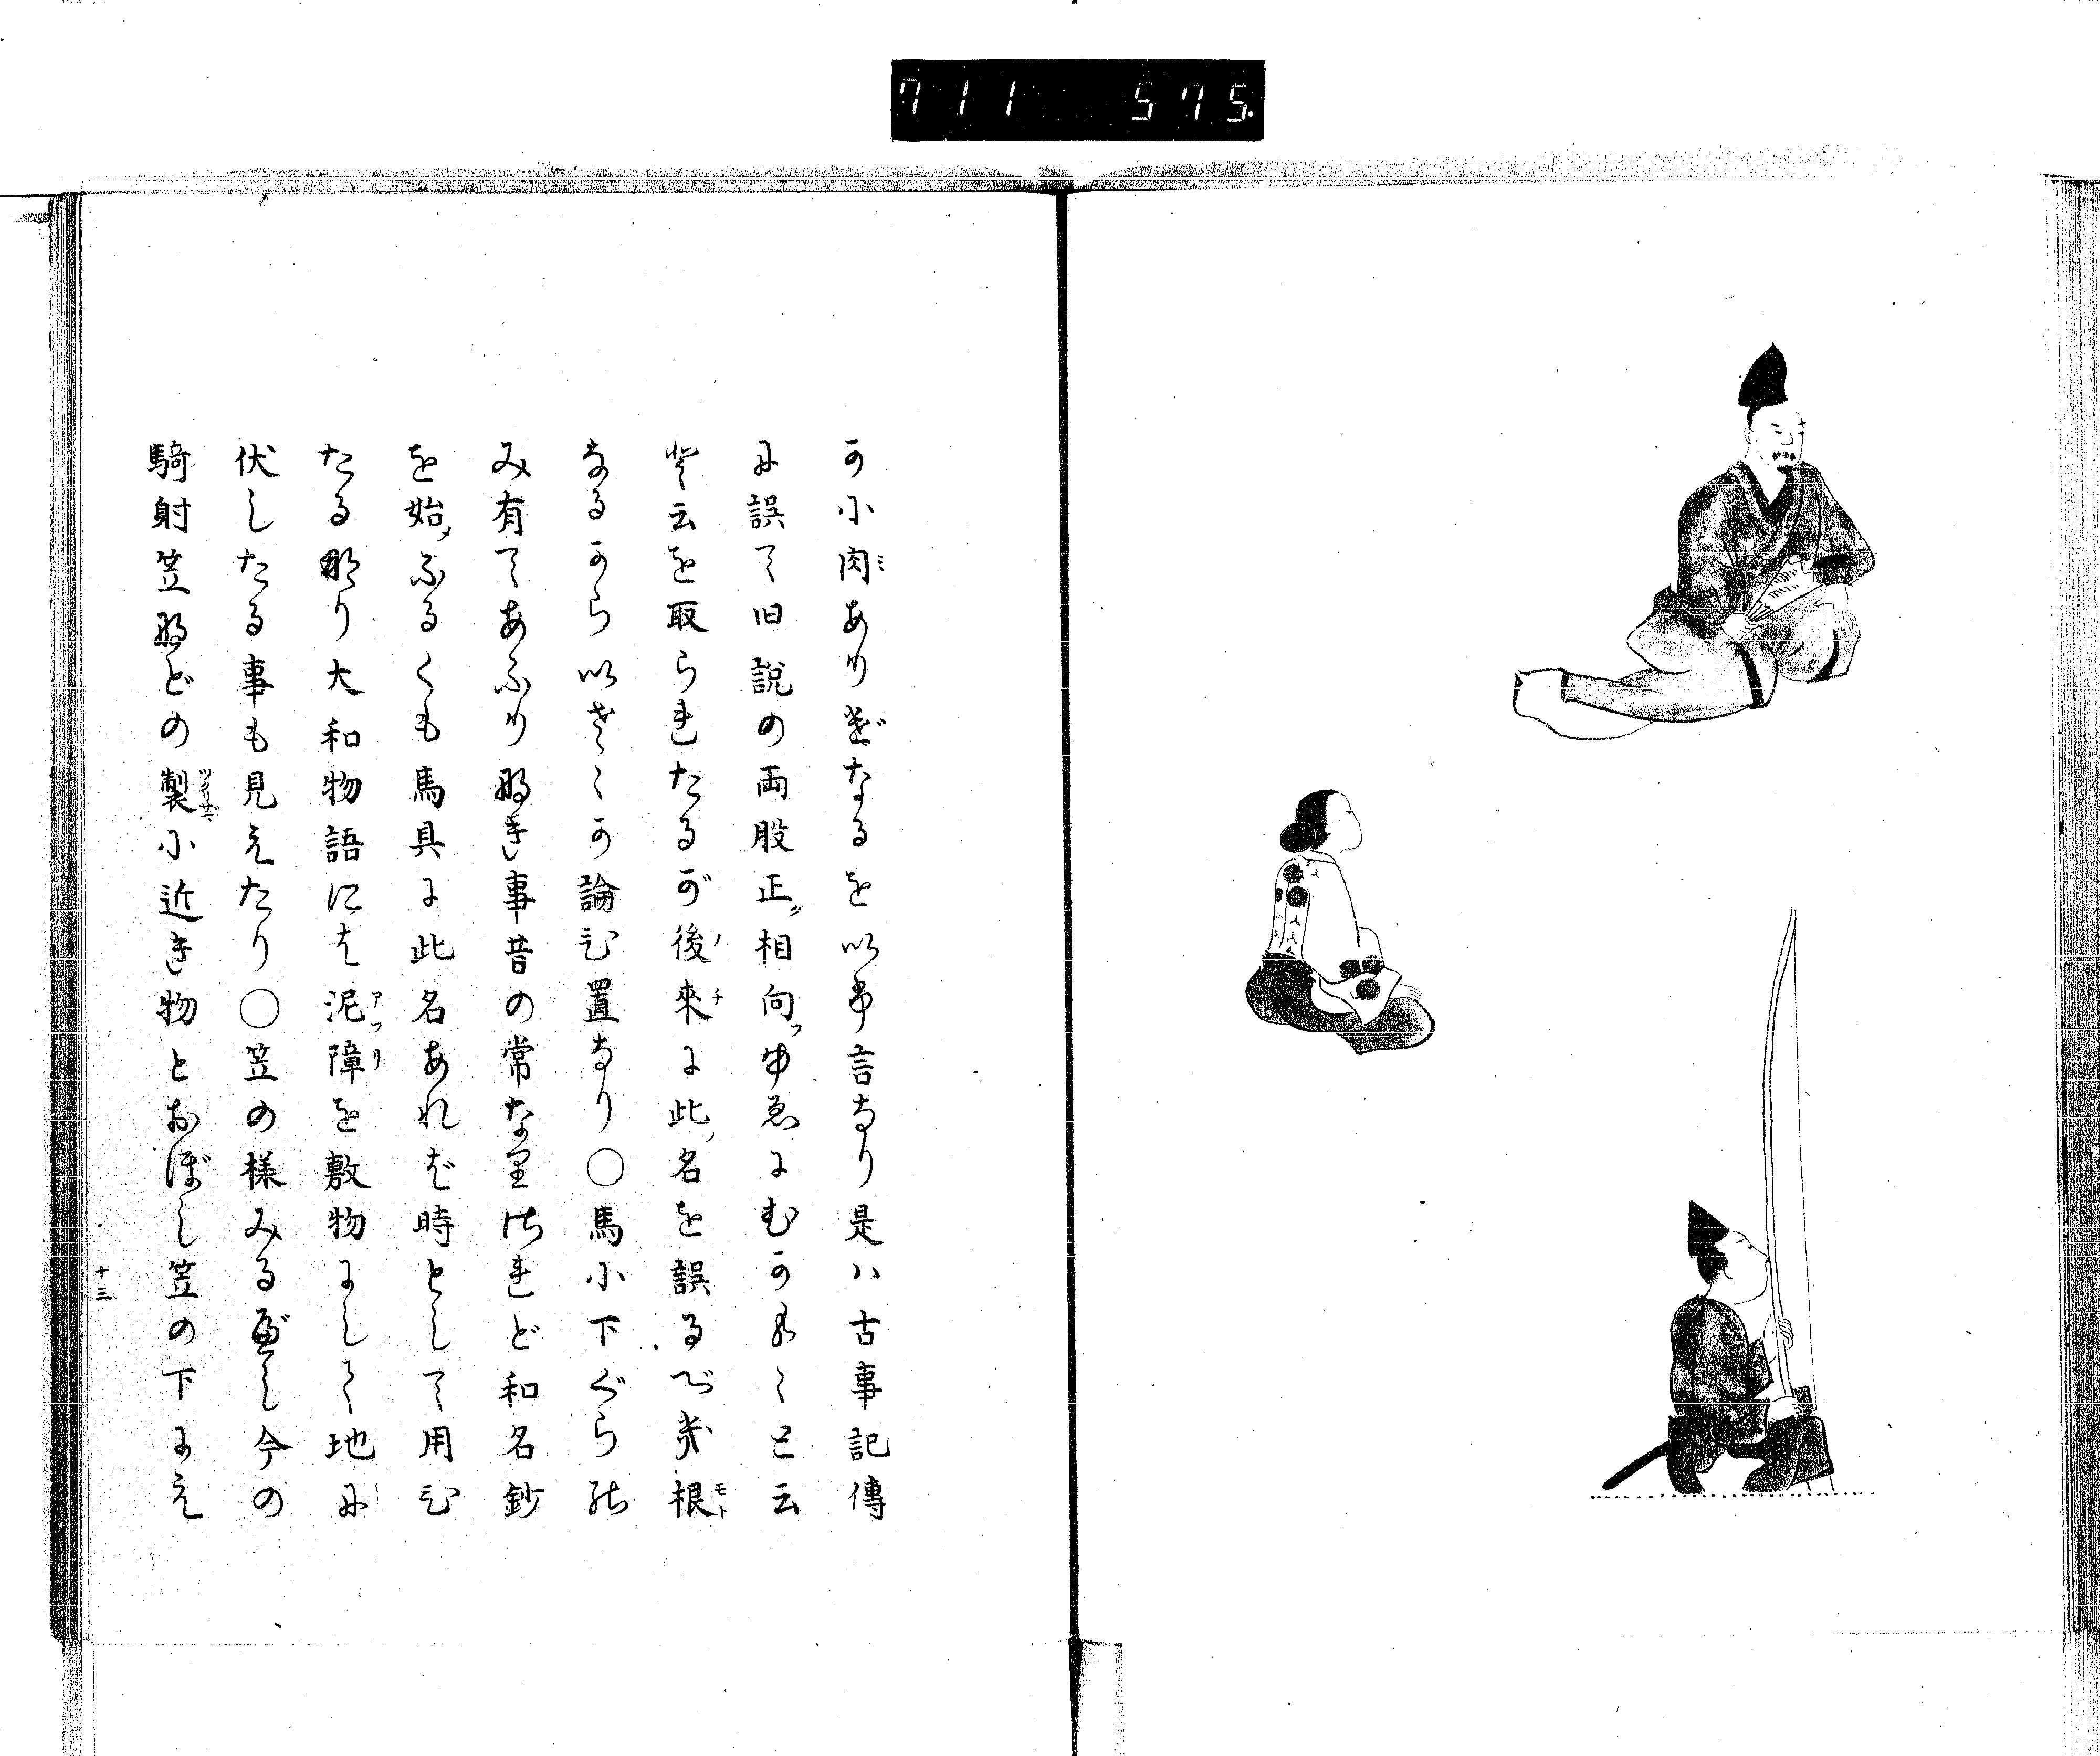 711 575
か小肉ありげなるを以ゐ言なり是ハ古事記傳
に誤て旧説の両股正相向ゆゑにむかふくと云
と云を取られたるが後來に此名を誤るべき根
なるから以さゝか論ひ置なり〇馬に下ぐらの
み有てあふりなき事昔の常なりけれど和名鈔
を始ふるくも馬具に此名あれば時として用ひ
たるなり大和物語には泥障を敷物にして地に
伏したる事も見えたり〇笠の様みるべし今の
騎射笠などの製に近き物とおぼし笠の下にえ
十三